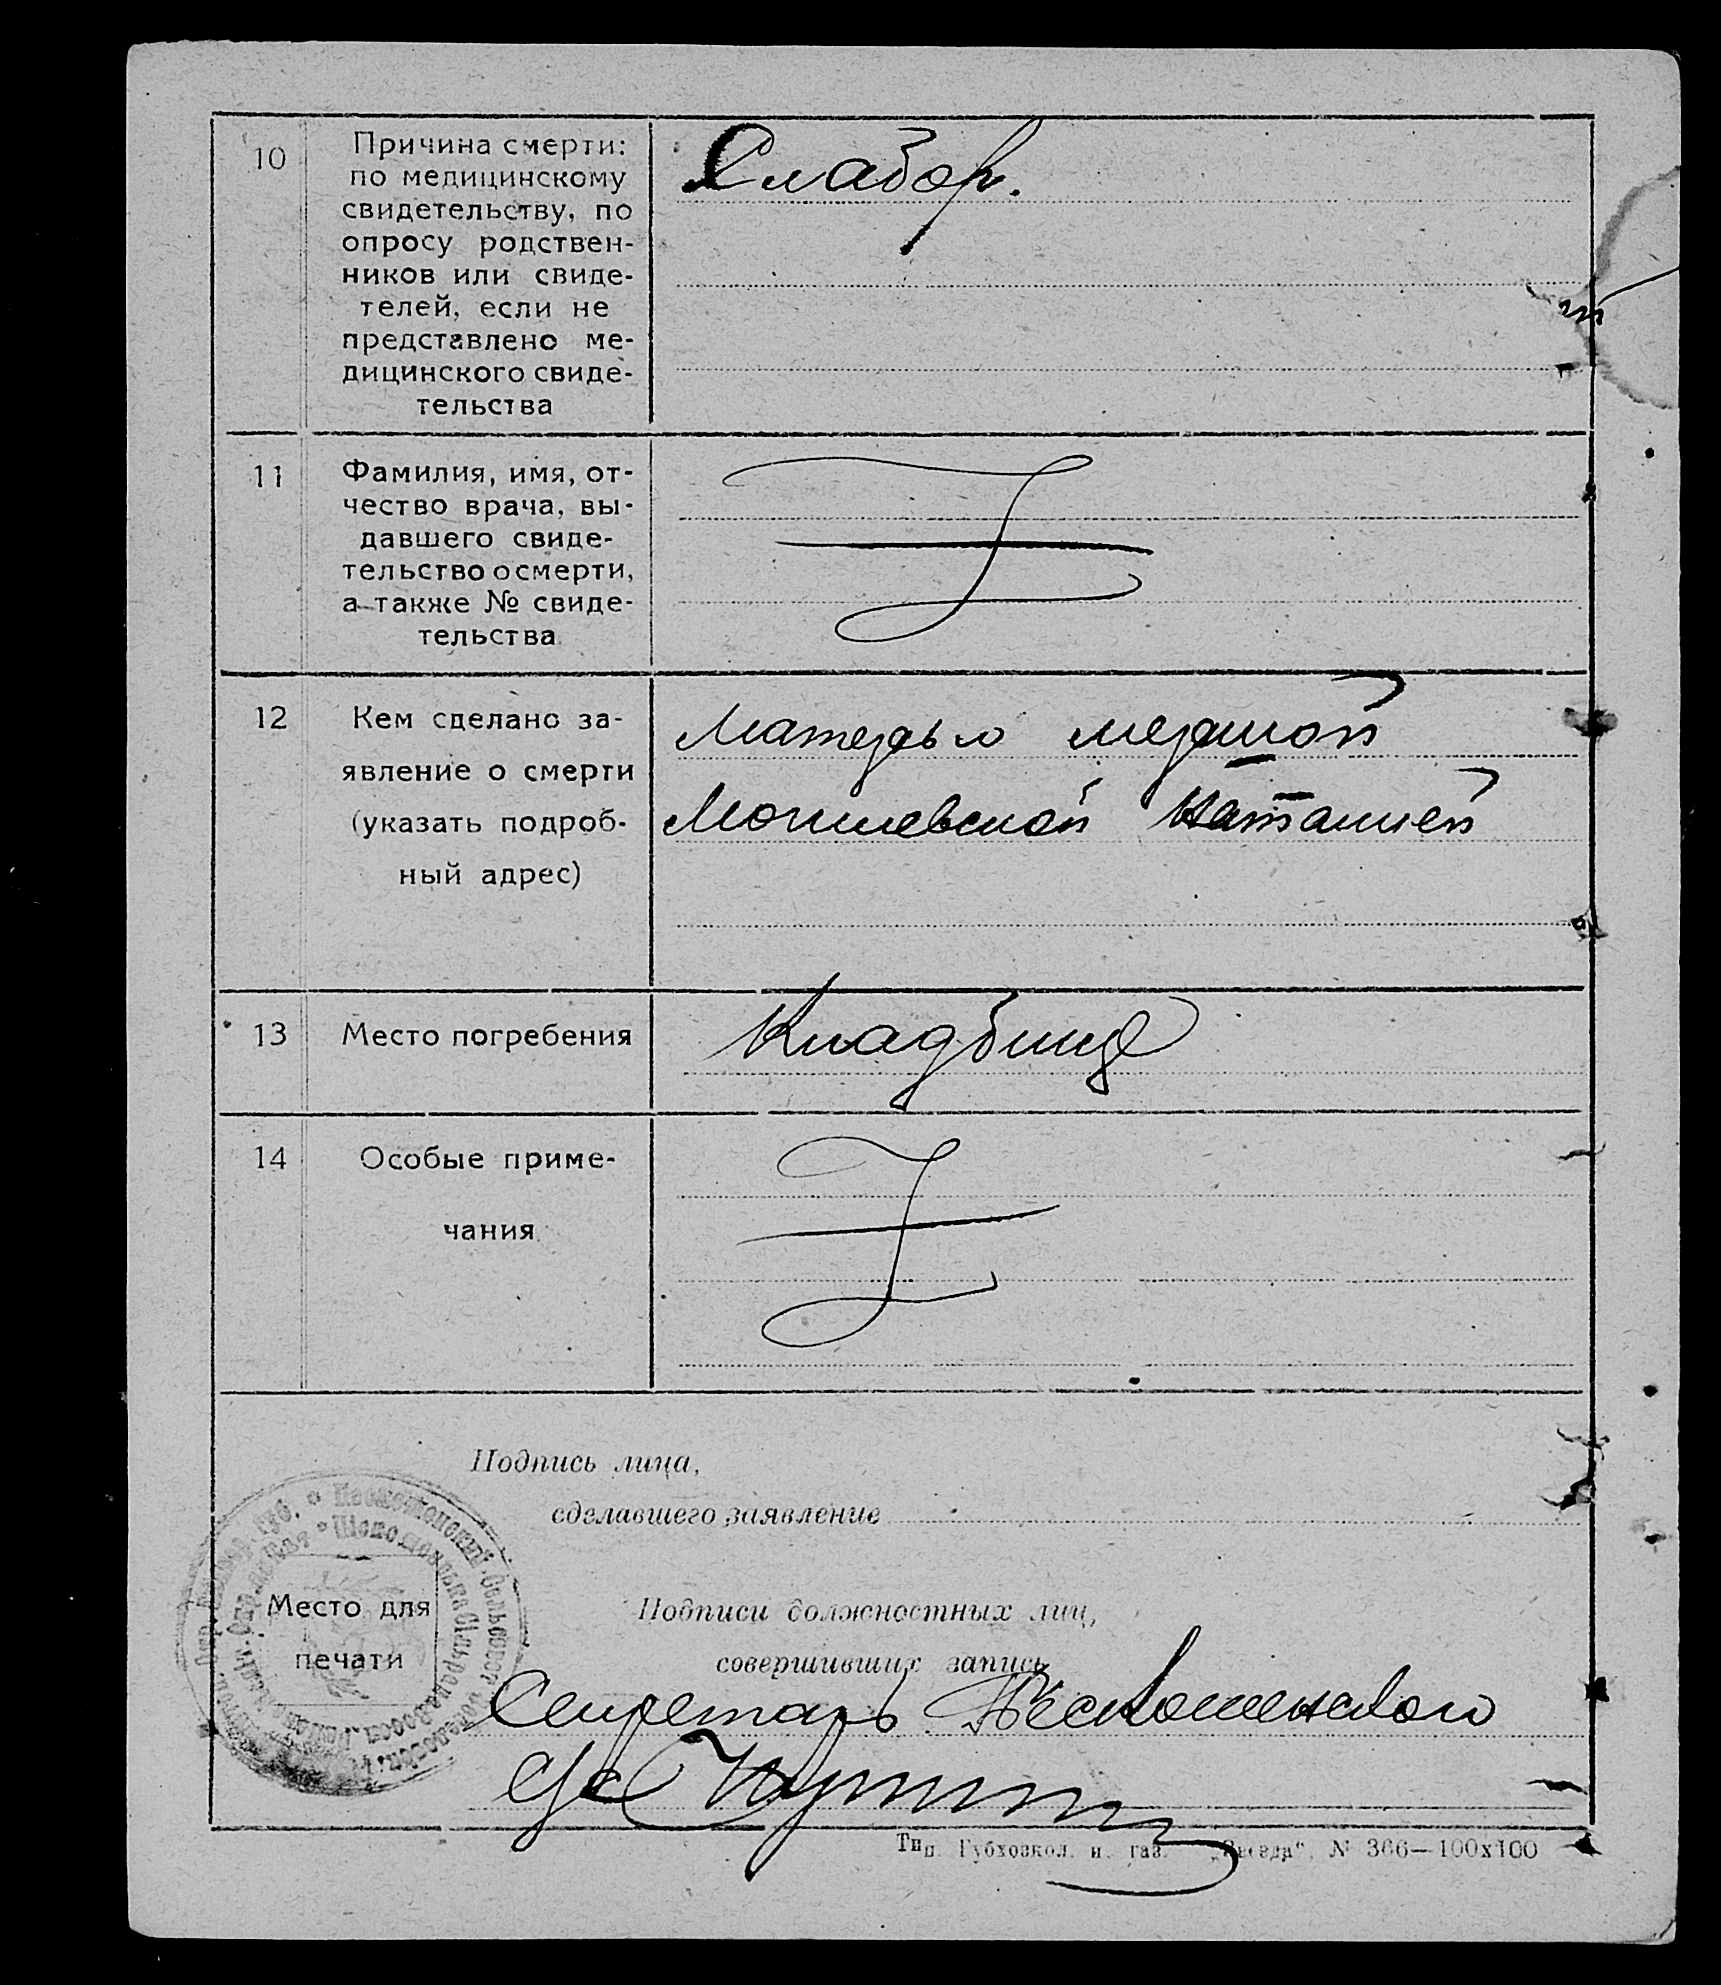 10
Причина смерти:
по медицинскому
свидетельству, по
опросу родствен-
ников или свиде-
телей, если не
представлено ме-
дицинского свиде-
тельства
Слабор.
11
Фамилия, имя, от-
чество врача, вы-
давшего свиде-
тельство о смерти,
а также № свиде-
тельства
12
Кем сделано за-
явление о смерти
(указать подроб-
ный адрес)
Матерью мершой
Могилевской Наталией
13
Место погребения
Кладбище
14
Особые приме-
чания
Подпись лица,
сделавшего заявление
Место для
печати
Подписи должностных лиц,
совершивших запись
Секретарь
Тип. Губхозкол. и. газ. „Звезда“, № 366—100х100